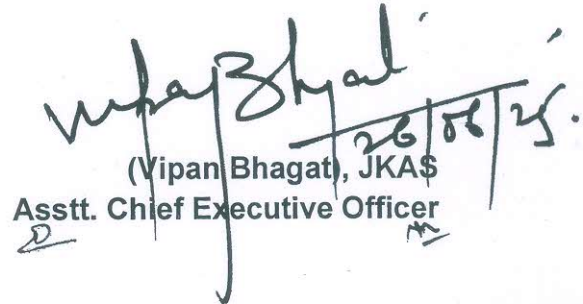 Vipan Bhagat
26/06/25.
(Vipan Bhagat), JKAS
Asstt. Chief Executive Officer